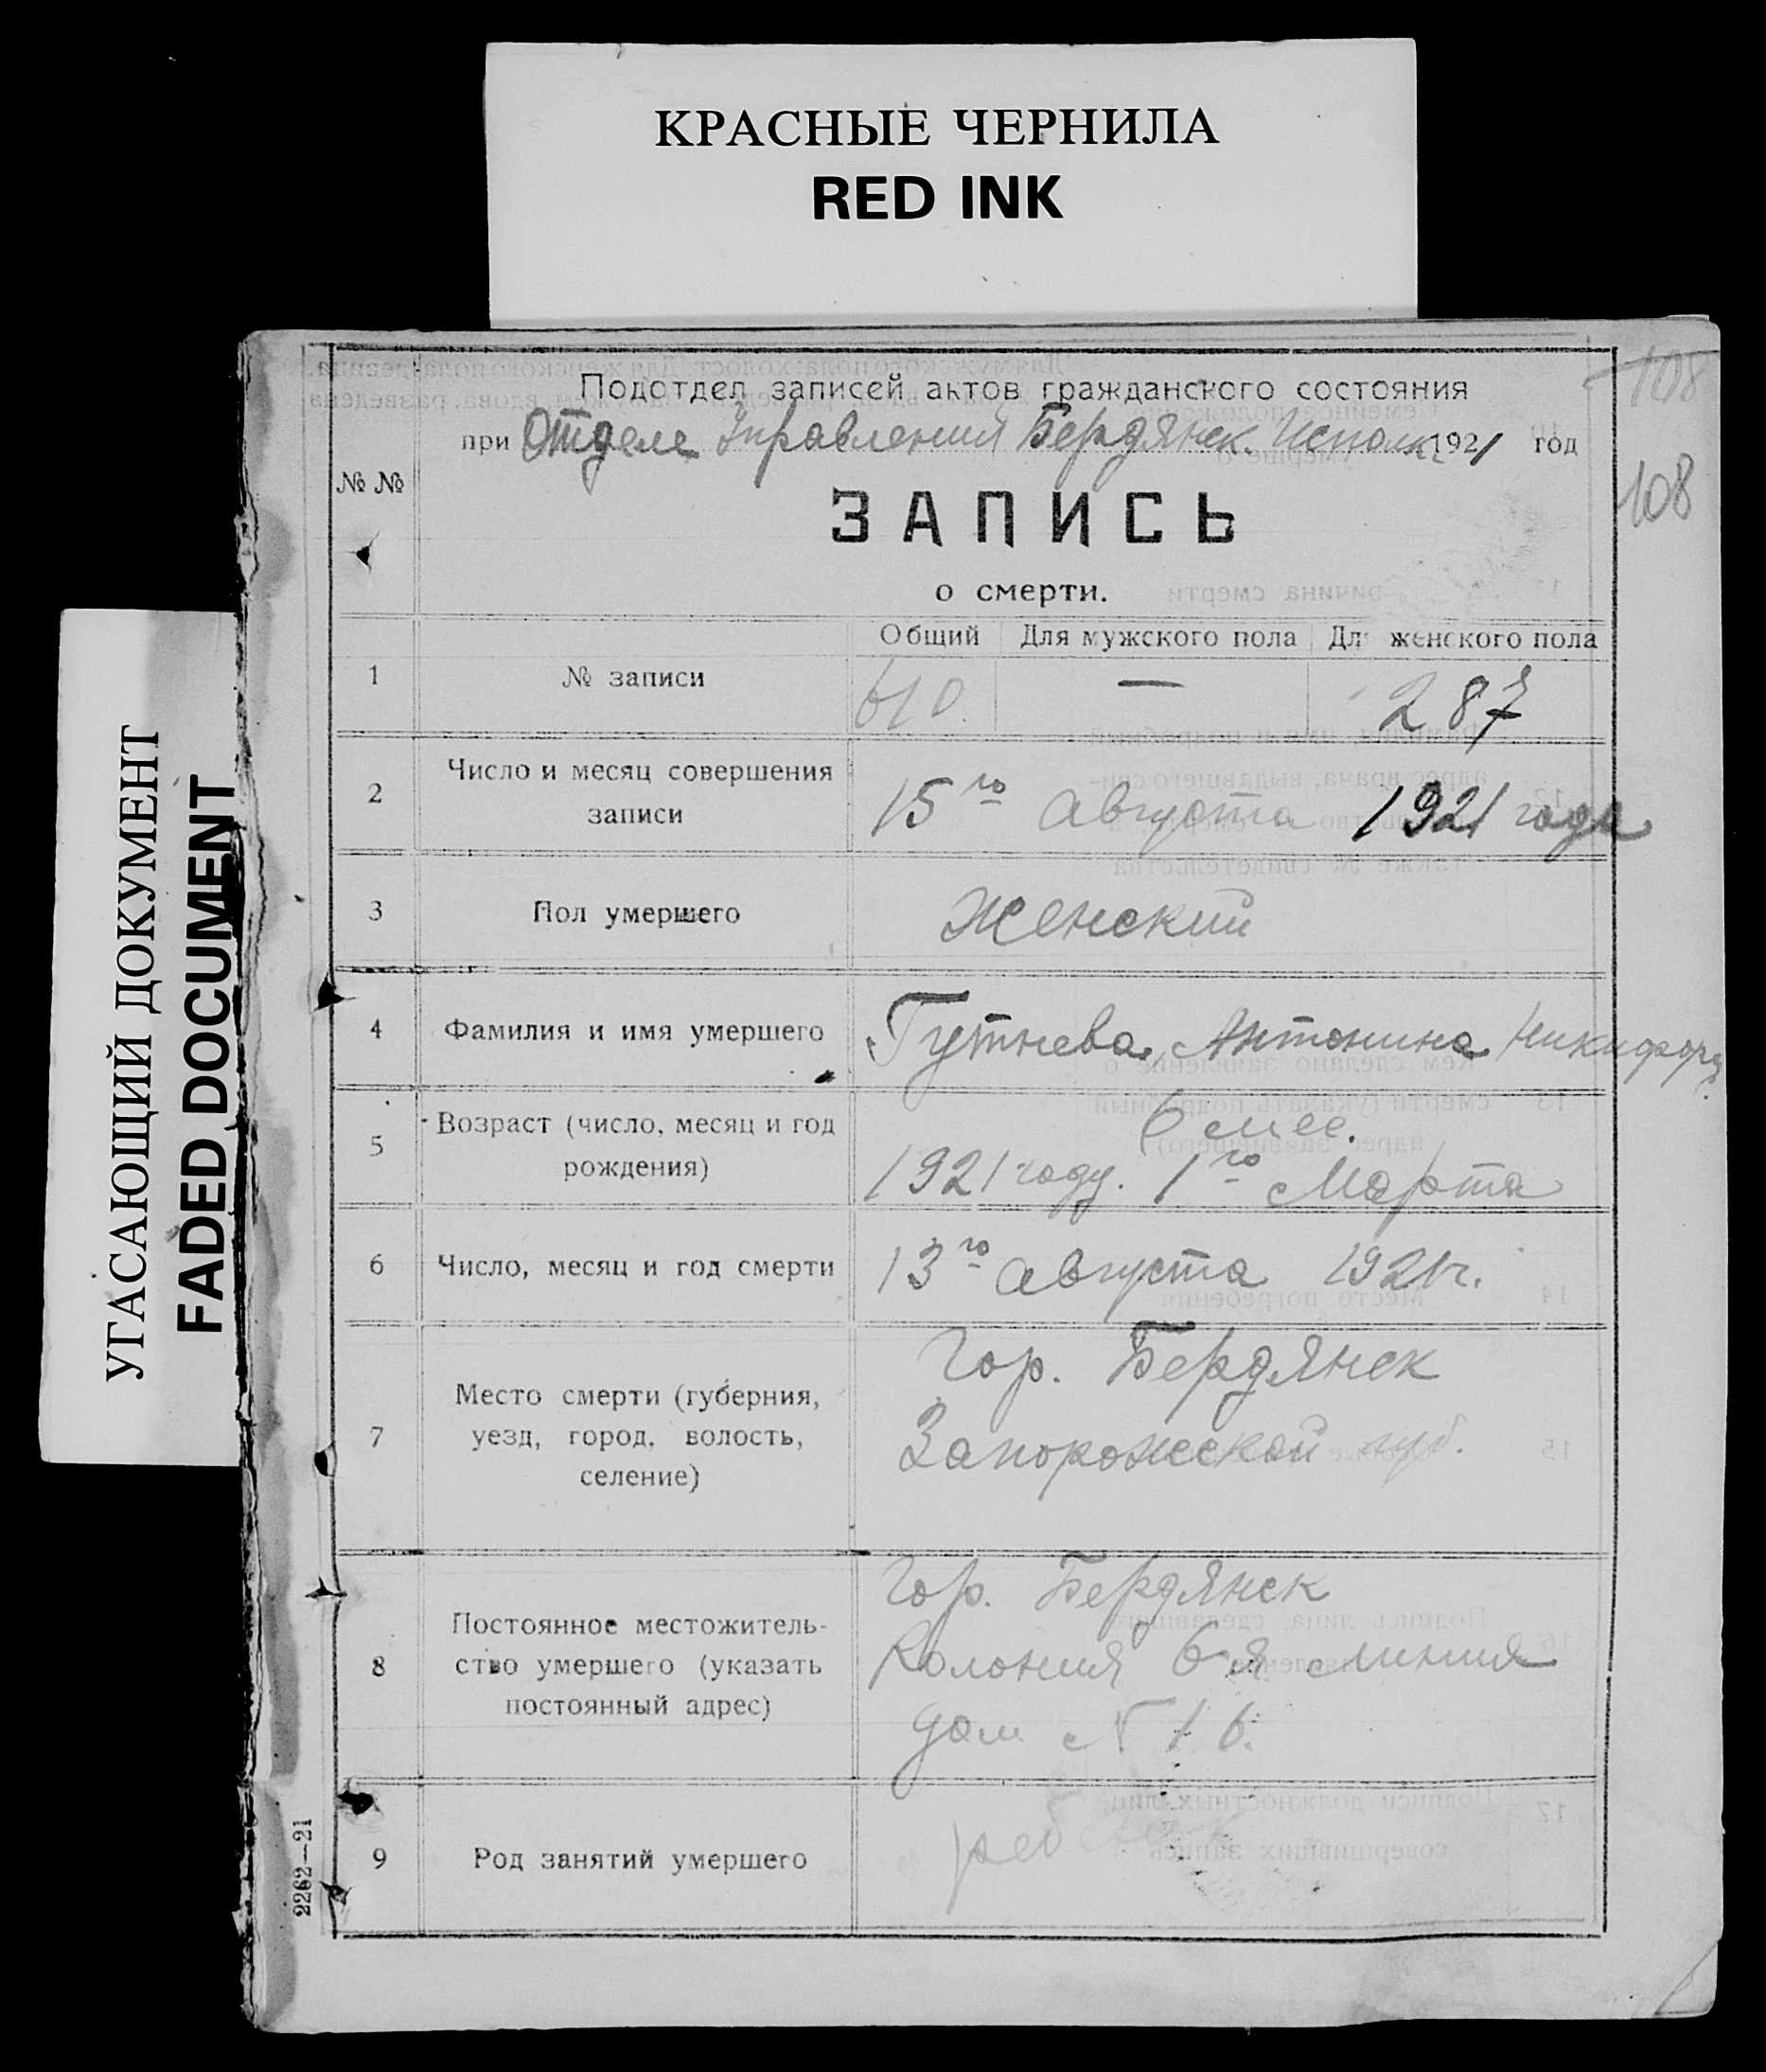 КРАСНЫЕ ЧЕРНИЛА
RED INK
УГАСАЮЩИЙ ДОКУМЕНТ
FADED DOCUMENT
108
108
Подотдел записей актов гражданского состояния
при Отделе Управления Бердянск. Исполк. 1921 год
№ №
ЗАПИСЬ
о смерти.
Общий Для мужского пола Для женского пола
1 № записи 610. — 287
2 Число и месяц совершения
записи 15го Августа 1921 года
3 Пол умершего Женский
4 Фамилия и имя умершего Гутнева, Антонина Никифор.
5 Возраст (число, месяц и год
рождения)
6 мес.
1921 году. 1го Марта
6 Число, месяц и год смерти 13го Августа 1921 г.
7 Место смерти (губерния,
уезд, город, волость,
селение)
Гор. Бердянск
Запорожской губ.
8 Постоянное местожитель-
ство умершего (указать
постоянный адрес)
Гор. Бердянск
Колония 6-я линия
дом № 16.
9 Род занятий умершего
2262—21